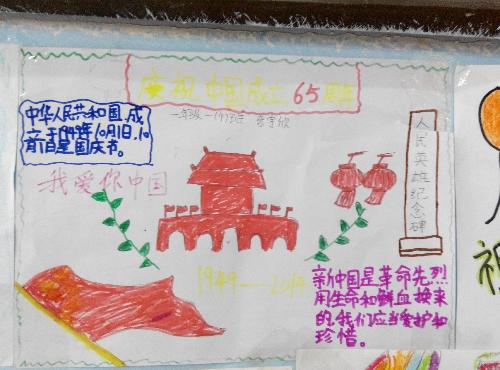 庆祝中国成立65周年
一年级一(4)班
中华人民共和国,成
立于1949年10月1日,10
月1日是国庆节。
我爱你中国
人民英雄纪念碑
1949——2014
新中国是革命先烈
用生命和鲜血换来
的,我们应当爱护和
珍惜。
祝